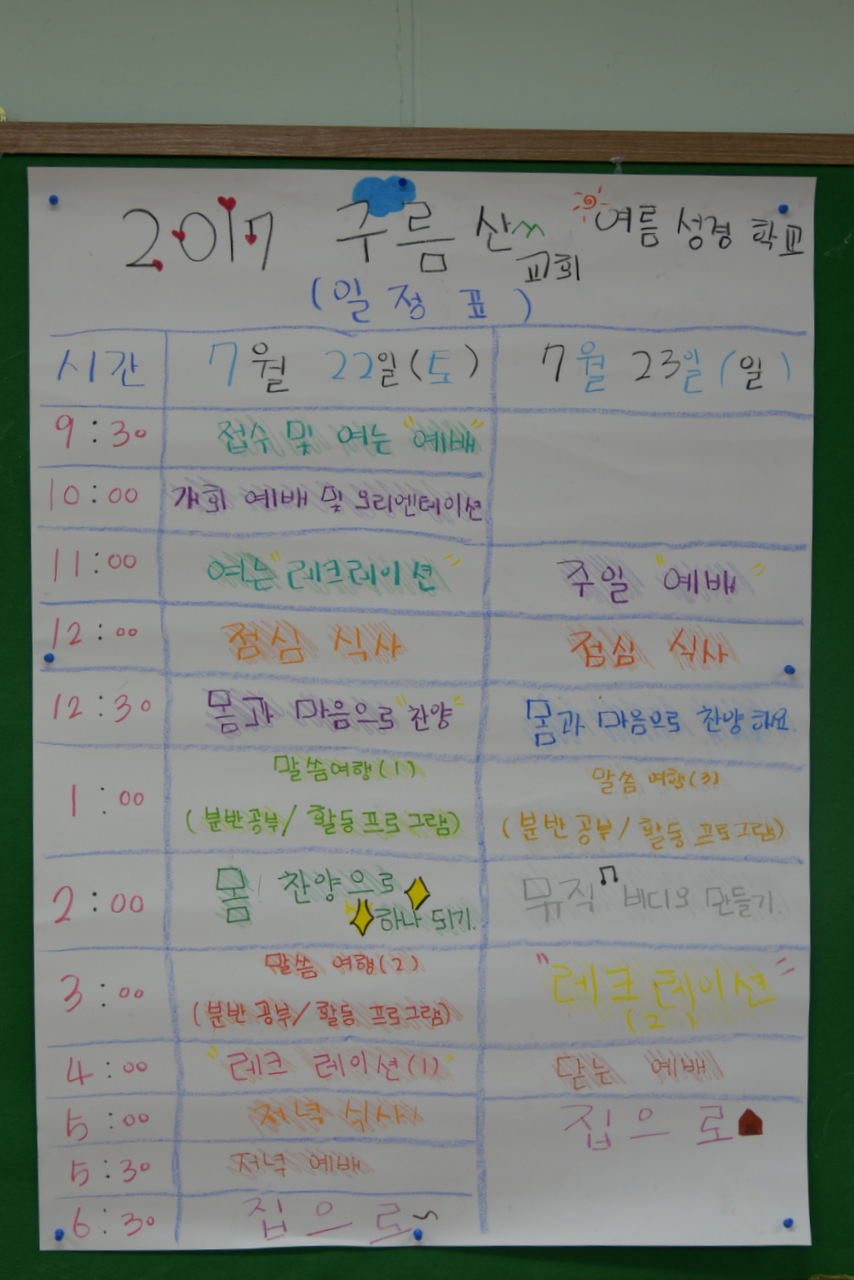 2017 구름산 여름 성경 학교
교회
(일정표)
시간 7월 22일(토) 7월 23일(일)
9:30 접수 및 여는 "예배"
10:00 개회 예배 및 오리엔테이션
11:00 여는 "레크레이션" 주일 "예배"
12:00 점심 식사 점심 식사
12:30 몸과 마음으로 "찬양" 몸과 마음으로 찬양 하요.
1:00 말씀여행(1) 말씀 여행(3)
(분반공부/ 활동프로그램) (분반공부/ 활동 프로그램)
2:00 몸 찬양으로 뮤직 비디오 만들기.
하나 되기.
3:00 말씀 여행(2) "레크레이션"
(분반 공부/ 활동 프로그램) (2)
4:00 "레크레이션(1)" 닫는 예배
5:00 저녁 식사 집으로
5:30 저녁 예배
6:30 집으로~